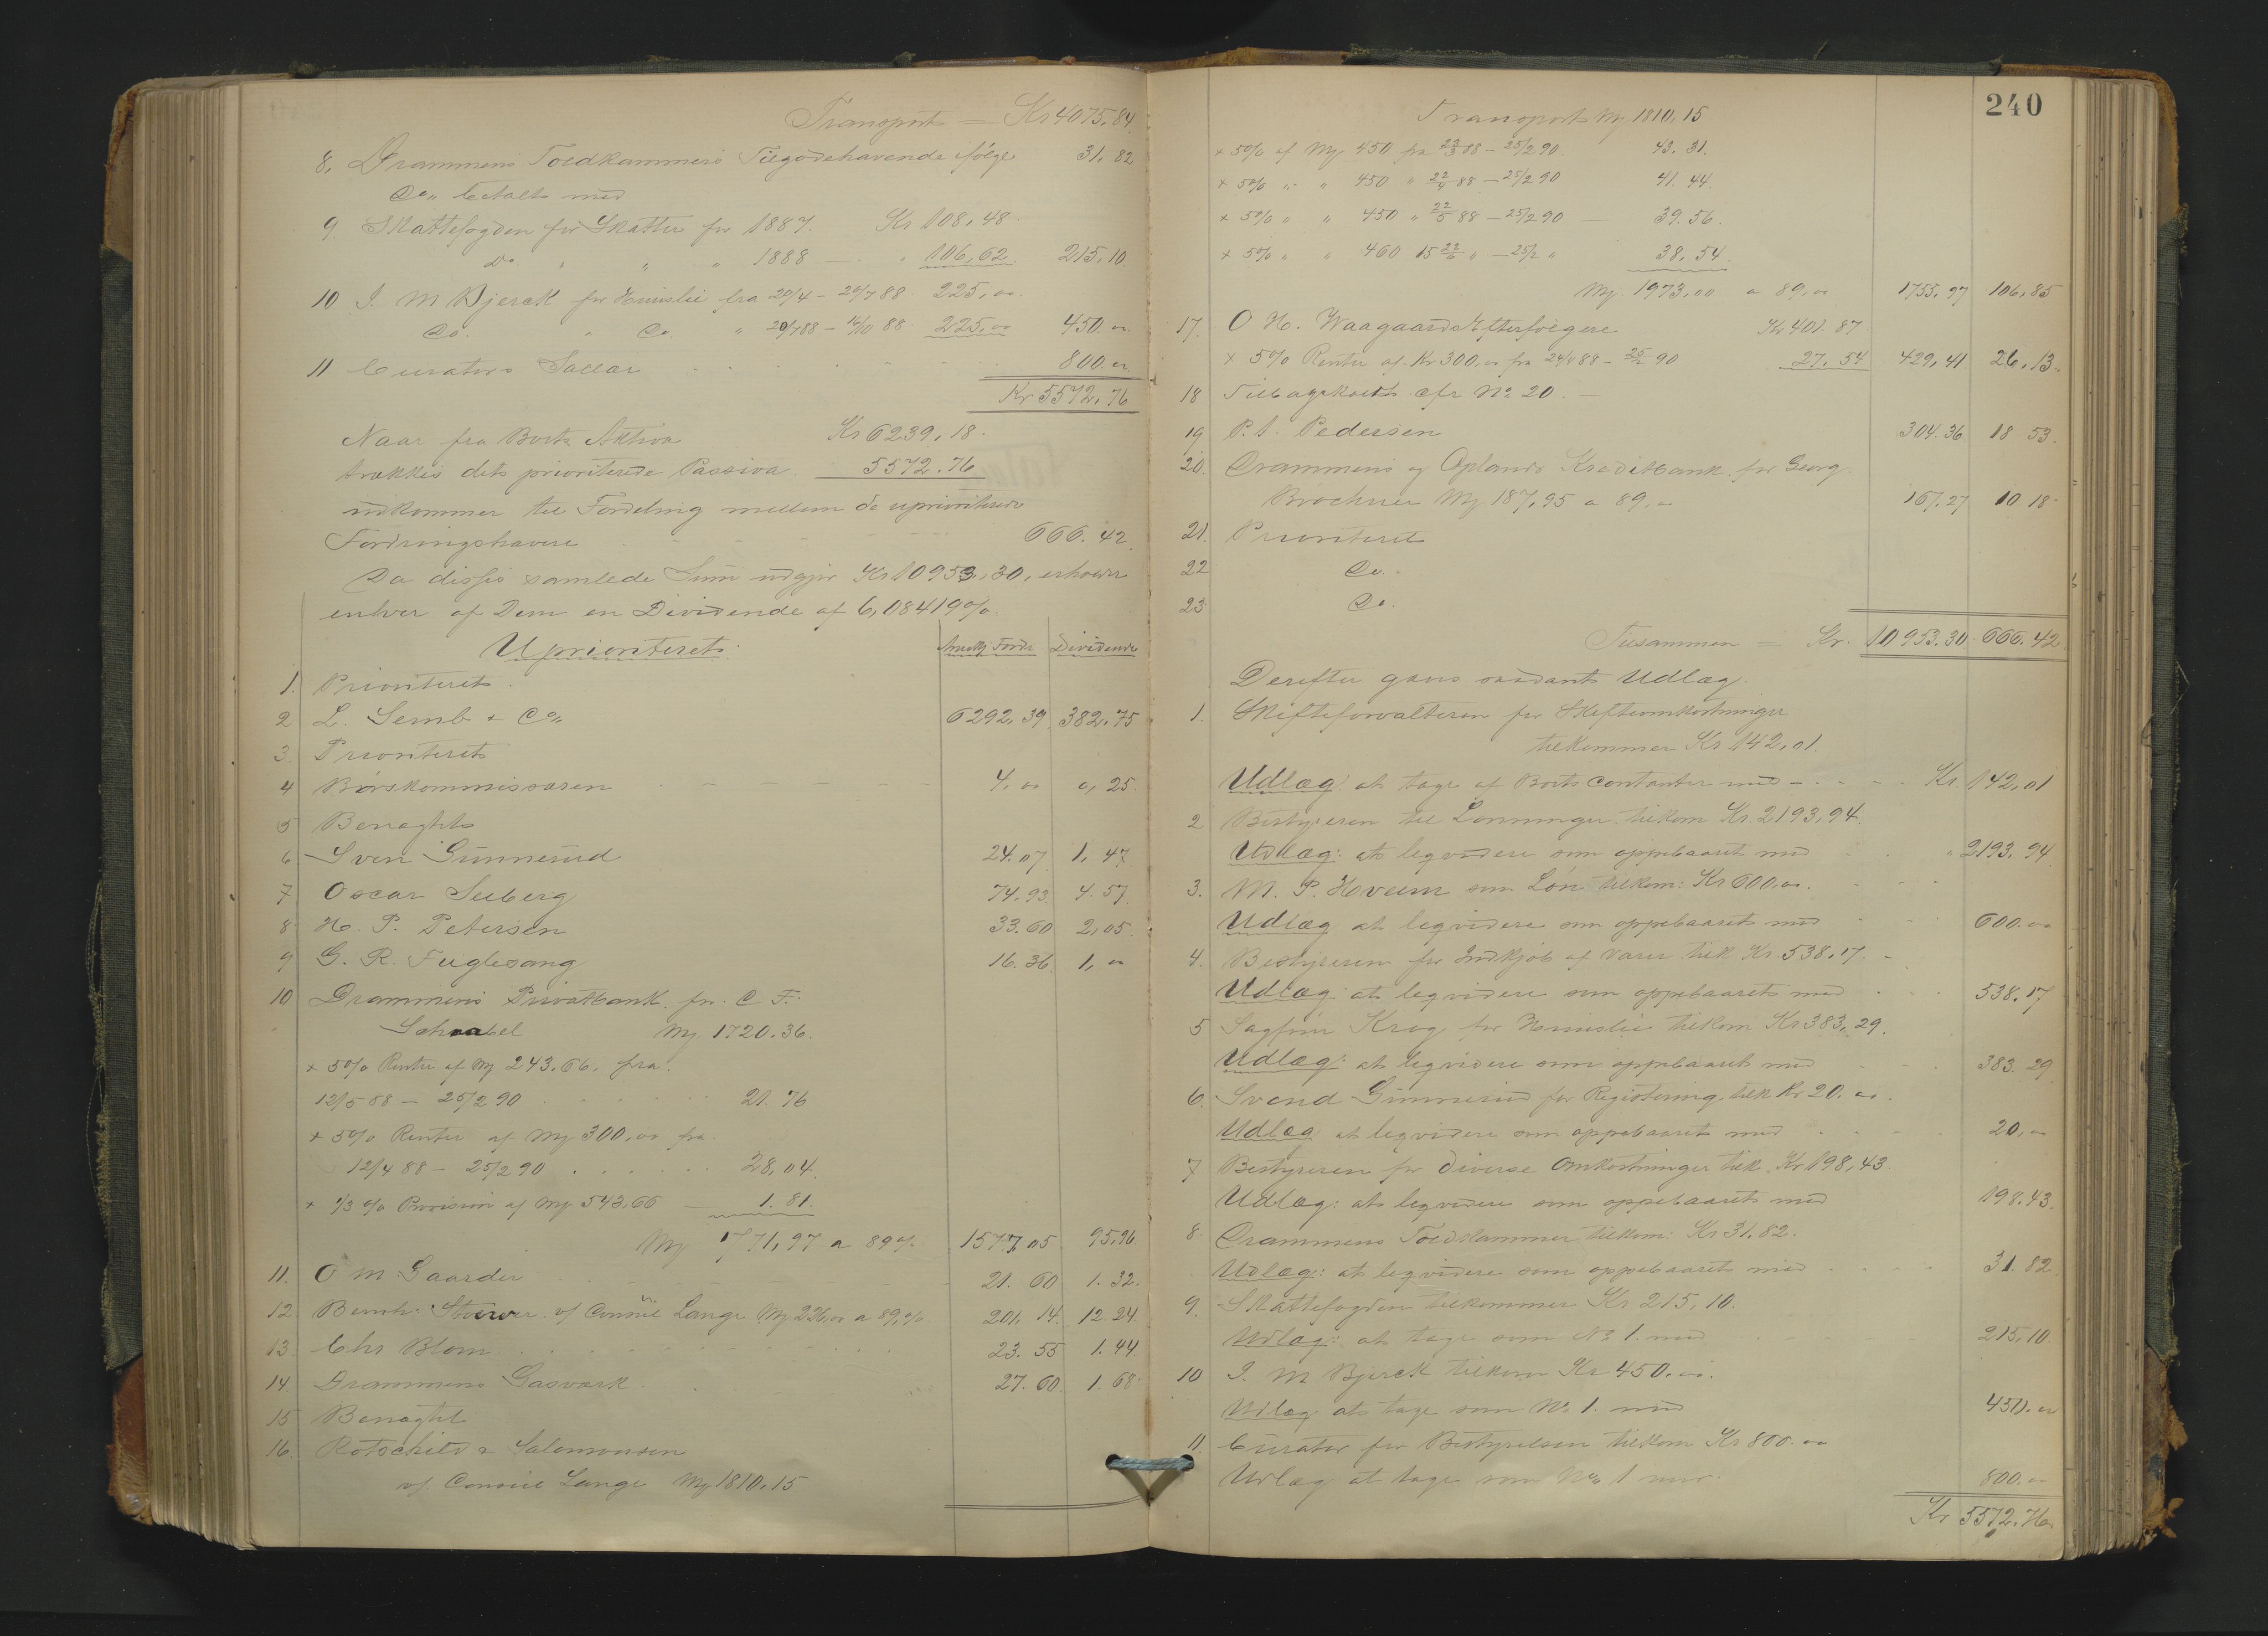 Transport = Kr 4075,84
8, Drammens Toldkammers Tilgodehavende ifölge 31,82
Do betalt med
9 Skattefogden for Skatter for 1887. Kr 108,48
Do " " " 1888 — " 106,62 215,10
10 J. M Bjerck for Huusleie fra 20/4 - 20/7 88 225,00
Do. " Do " 20/7 88 - 16/10 88 225,00 450.00
11 Curators Sallair 800.00
Kr 5572,76
Naar fra Boets Aktiva Kr 6239,18.
trækkes dets prioriterede Passiva 5572.76
udkommer til Fordeling mellem de uprioriterede
Fordringshavere 666.42
Da disses samlede Sum udgjør Kr 10953,30, erholder
enhver af Dem en Dividende af 6,08419%.
Uprioriteret: Anm Fordr. Dividende
1. Prioriteret
2 L. Semb & Co 6292,39 382,75
3. Prioriteret
4 Börskommissæren 4,00 0,25
5 Benægtet
6 Sven Gunnerud 24.07 1,47
7 Oscar Seeberg 74.93 4.57
8 H. P. Petersen 33.60 2,05
9 G. R. Fuglesang 16.36 1,00
10 Drammens Privatbank for C F.
Schnabel My 1720.36.
+ 5% Renter af My 243.66. fra
12/5 88 - 25/2 90 21.76
+ 5% Renter af My 300,00 fra
12/4 88 - 25/2 90 28,04
+ 1/3 % Provision af My 543,66 1.81.
My 1771,97 a 89% 1577,05 95,96
11. O M Gaarder 21.60 1.32.
12. Bernh. Stoewer v/ Consul Lange My 226,00 a 89,% 201,14 12.24
13. Chs Blom 23.55 1.44
14 Drammens Gasværk 27.60 1.68
15 Benægtet
16 Rotschild & Salomonsen
v/ Consul Lange My 1810,15
240
Transport My 1810,15
+ 5% af My 450 fra 22/3 88 - 25/2 90. 43.31.
+ 5% " " 450 " 22/4 88 - 25/2 90 41.44.
+ 5% " " 450 " 22/5 88 - 25/2 90 — 39.56.
+ 5% " " 460 15 22/6 " - 25/2 " 38,54.
My 1973,00 a 89,00 1755,97 106,85
17. O H. Waagaards Efterfølgere Kr 401.87
+ 5% Renter af Kr 300,00 fra 24/4 88 - 25/2 90 27.54 429,41 26,13.
18 Tilbagekaldt cfr No 20. —
19 P. A. Pedersen 304.36 18 53.
20. Drammens og Oplands Kreditbank for Georg
Brochner My 187,95 a 89,00 167,27 10 18
21. Prioriteret
22 Do.
23 Do.
Tilsammen = Kr. 10953.30 666.42
Derefter gjøres saadant Udlæg.
1. Skifteforvalteren for Skifteomkostninger
tilkommer Kr 142,01.
Udlæg at tage af Boets Contanter med — Kr 142,01
2 Bestyreren til Lønninger tilkom Kr. 2193,94.
Udlæg: at leqvidere som oppebaaret med " 2193,94
3. M. P. Hveem som Lön tilkom: Kr 600,00.
Udlæg at leqvidere som oppebaaret med 600.00
4. Bestyreren for Indkjöb af Varer tilk Kr 538.17. —
Udlæg at leqvidere som oppebaaret med 538.17
5 Sagfører Krog for Huusleie tilkom Kr 383,29.
Udlæg: at leqvidere som oppebaaret med 383.29
6. Svend Gunnerud for Registrering tilk Kr 20.00.
Udlæg at leqvidere som oppebaaret med 20,00
7 Bestyreren for diverse Omkostninger tilk. Kr 198,43
Udlæg: at leqvidere som oppebaaret med 198.43.
8. Drammens Toldkammer tilkom: Kr 31.82.
Udlæg: at leqvidere som oppebaaret med 31.82
9. Skattefogden tilkommer Kr 215,10.
Udlæg: at tage som No 1. med 215,10
10 J. M Bjerck tilkom Kr 450.00.
Udlæg at tage som No 1. med 450.00
11. Curator for Bestyrelsen tilkom Kr 800.00
Udlæg at tage som No 1 med. 800.00
Kr 5572.76